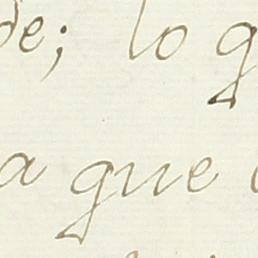 de; lo q
a que